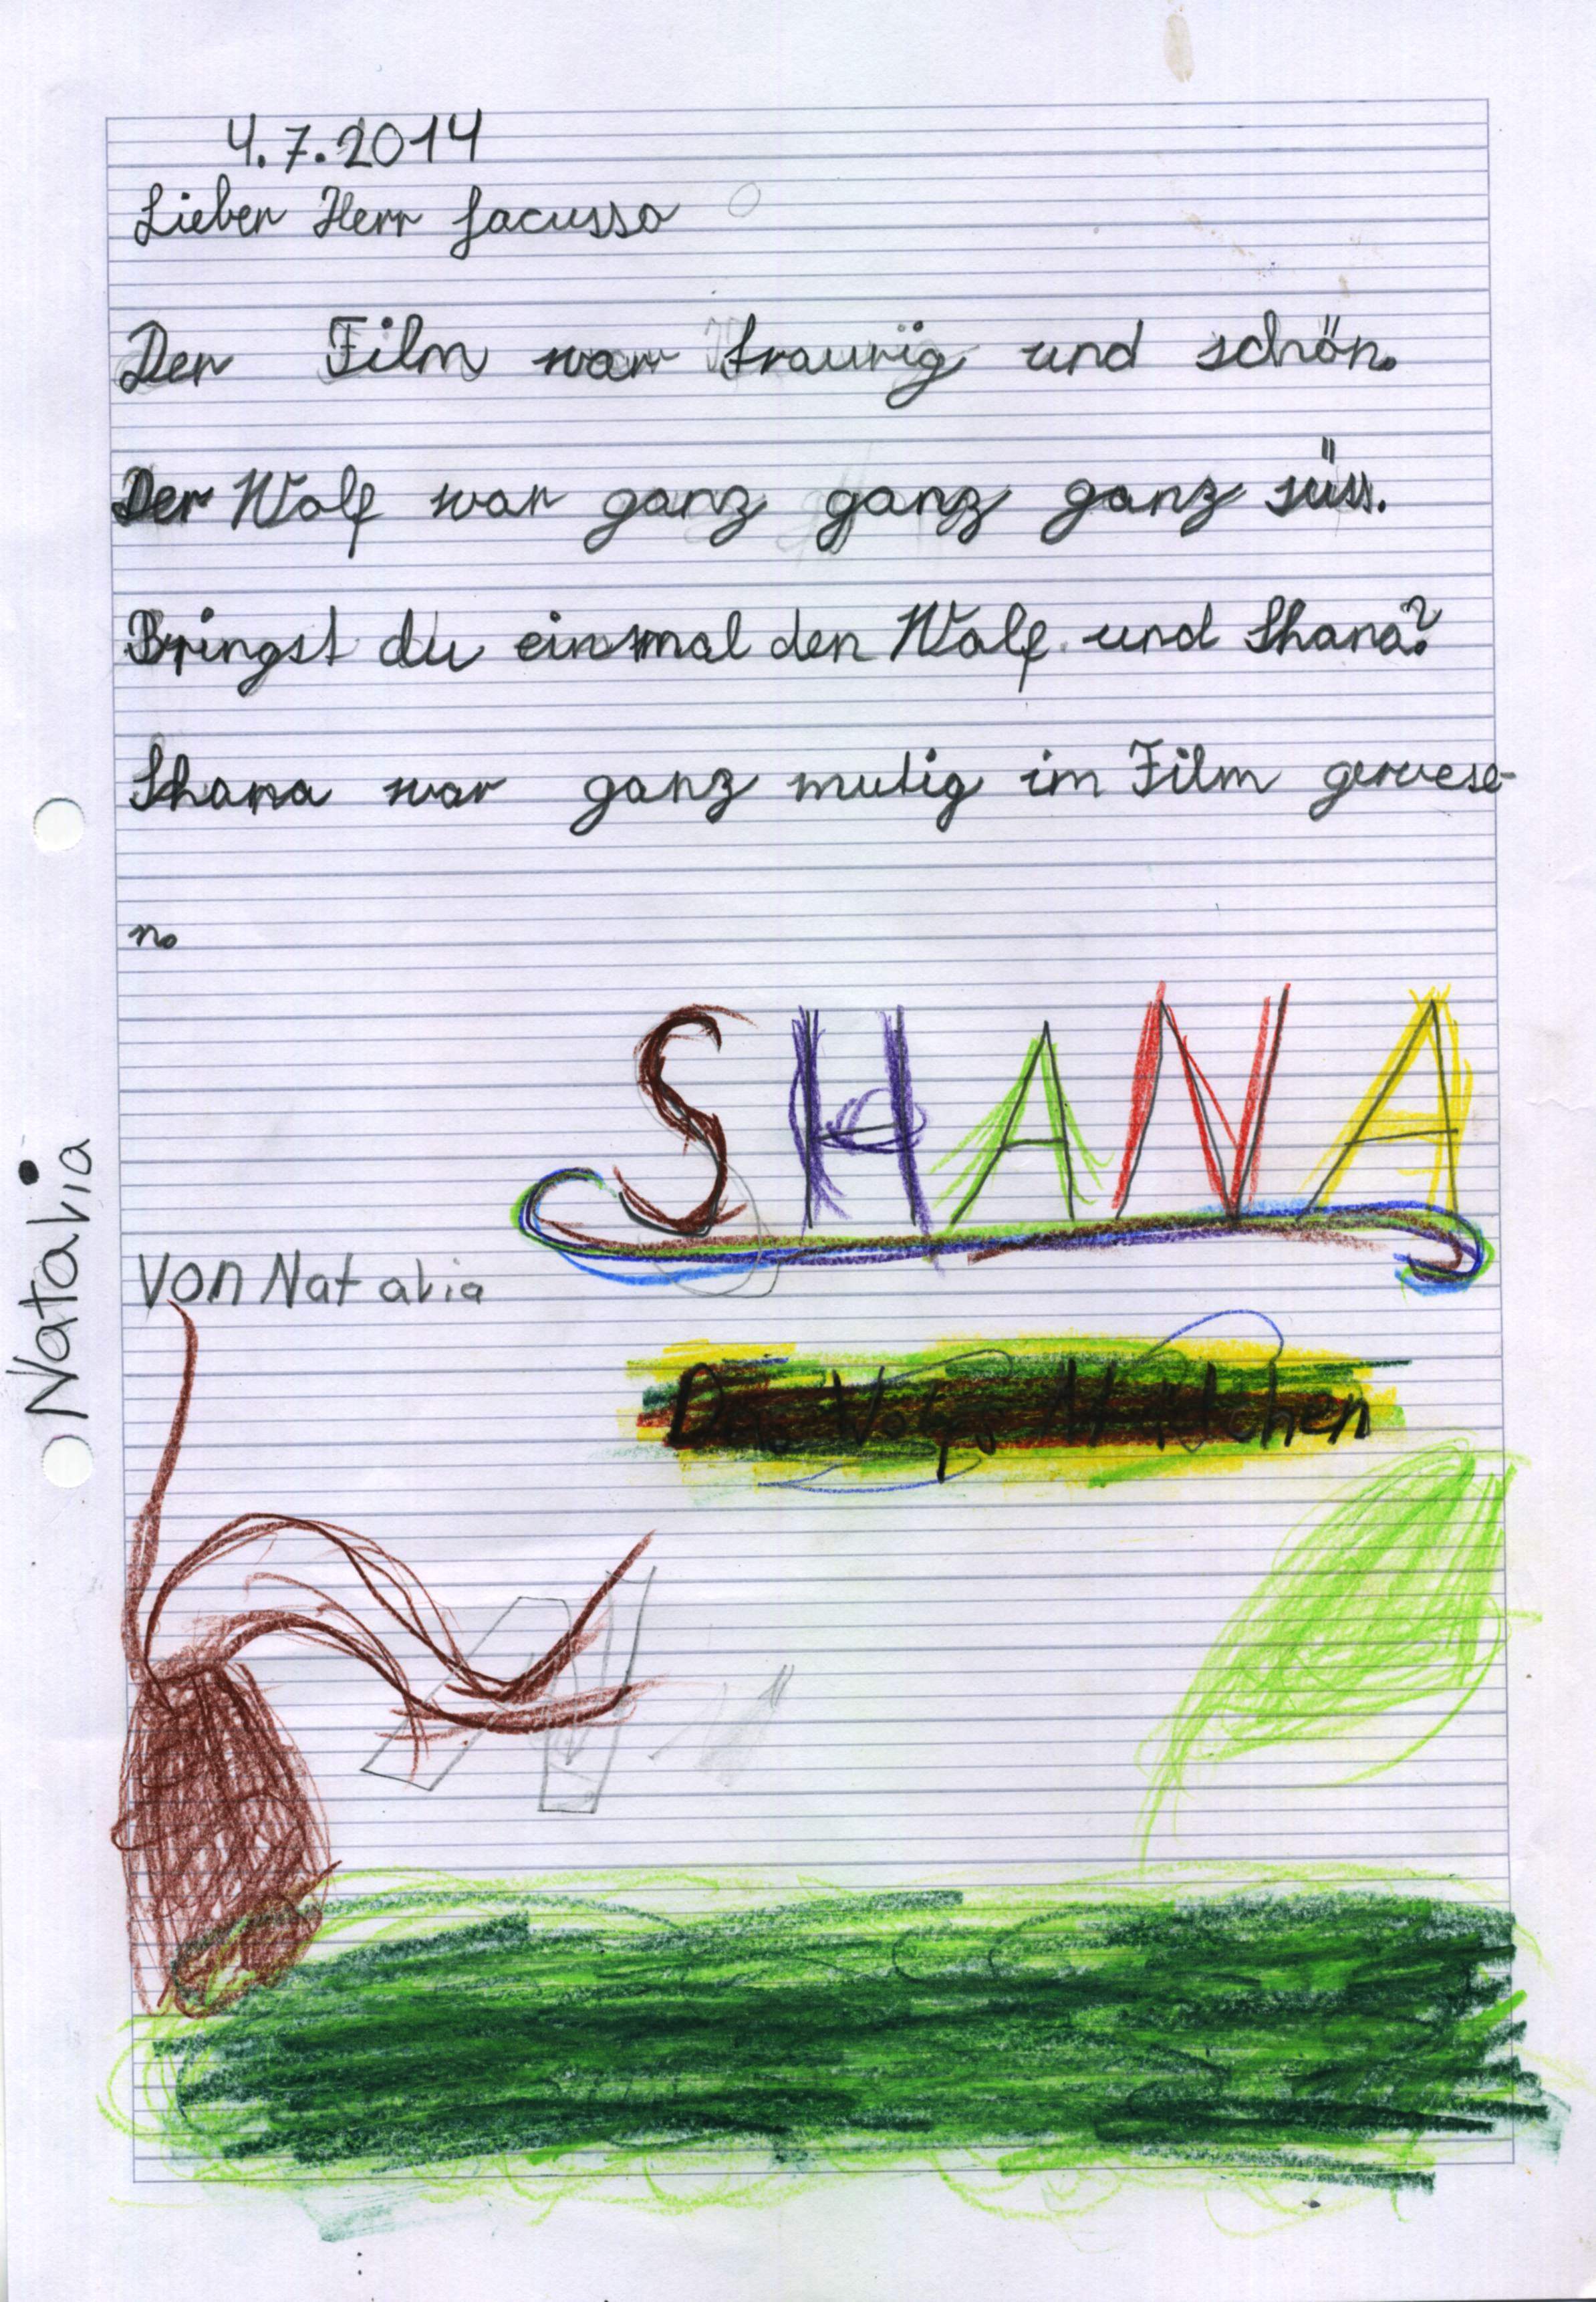 4.7.2014
Lieber Herr Jacusso
Der Film war traurig und schön.
Der Wolf war ganz ganz ganz süss.
Bringst du einmal den Wolf und Shana?
Shana war ganz mutig im Film gewese-
n.
SHANA
von Natalia
Das Wolfs Mädchen
Natalia